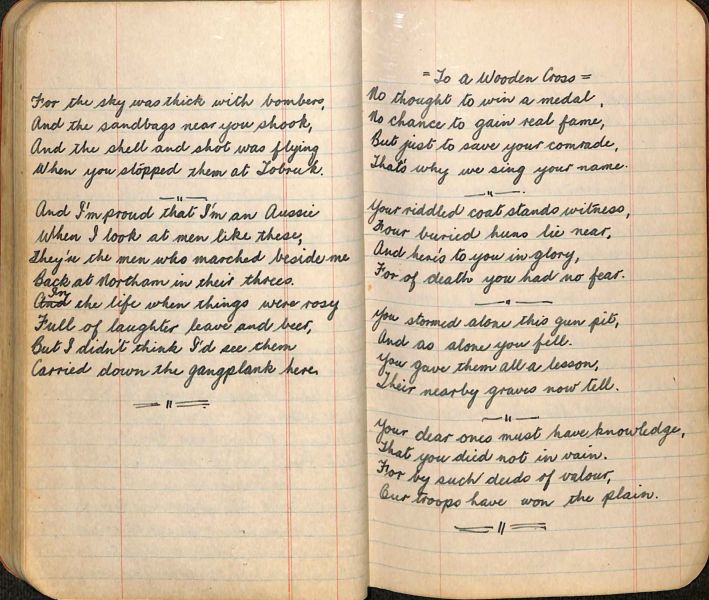 For the sky was thick with bombers,
And the sandbags near you shook,
And the shell and shot was flying
When you stopped them at Tobruk.
And I'm proud that I'm an Aussie
When I look at men like these,
They're the men who marched beside me
Back at Northam in their threes.
In
And the life when things were rosy
Full of laughter leave and beer,
But I didn't think I'd see them
Carried down the gangplank here.
= To a Wooden Cross =
No thought to win a medal,
No chance to gain real fame,
But just to save your comrade,
That's why we sing your name.
Your riddled coat stands witness,
Four buried huns lie near,
And here's to you in glory,
For of death you had no fear.
You stormed alone this gun pit,
And as alone you fell.
You gave them all a lesson,
Their nearby graves now tell.
Your dear ones must have knowledge,
That you died not in vain.
For by such deeds of valour,
Our troops have won the plain.